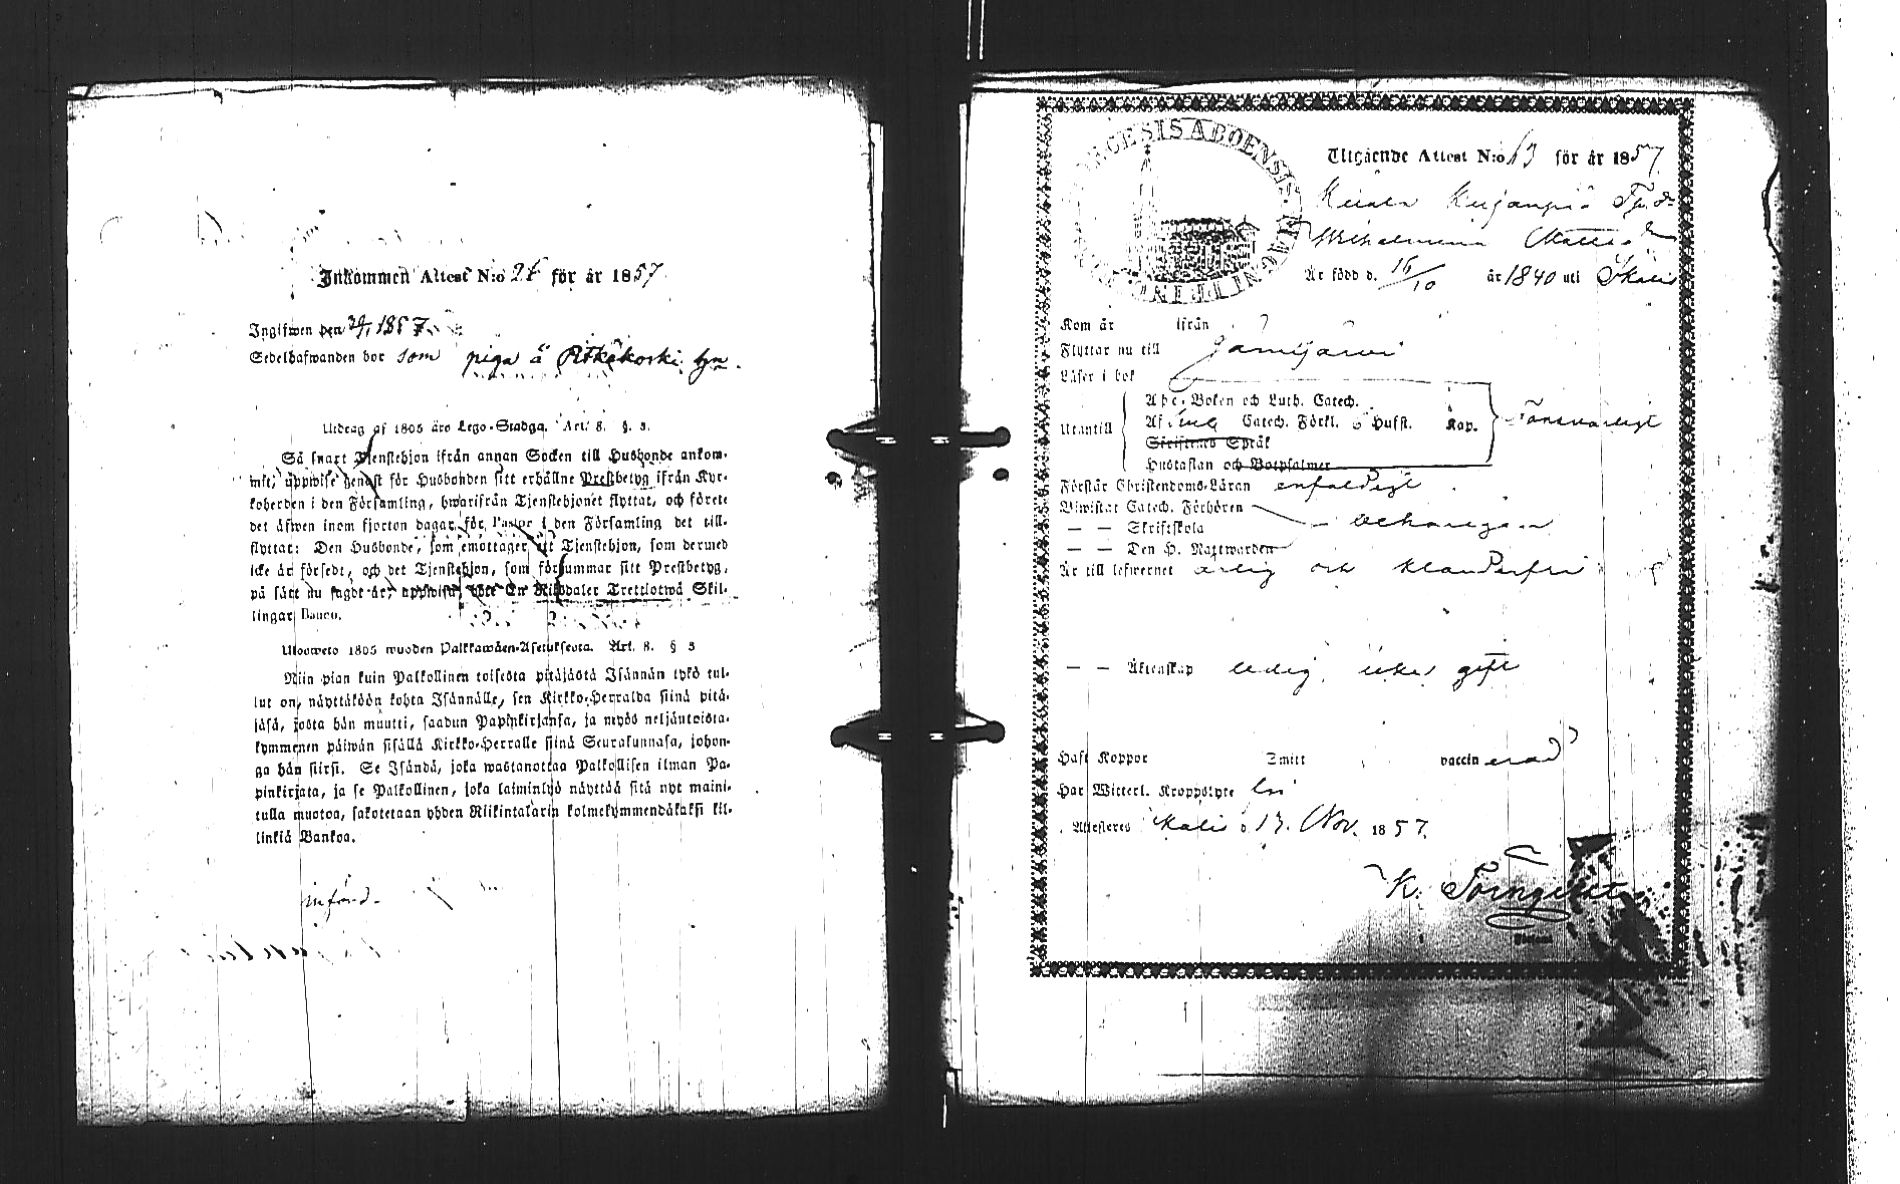 Inkommen Attest N:o 26 för år 1857
Ingifwen den 24/11 1857.
Sedelhafwanden bor som piga å Pitkäkoski hn.
Utdrag af 1805 års Lego-Stadga. Art. 8. §. 3.
Så snart Tjenstehjon ifrån annan Socken till Husbonde ankom-
mit, uppwise genast för Husbonden sitt erhållne Prestbetyg ifrån Kyr-
koherden i den Församling, hwarifrån Tjenstehjonet flyttat, och förete
det äfwen inom fjorton dagar för Pastor i den Församling det till-
flyttat: Den Husbonde, som emottager ett Tjenstehjon, som dermed
icke är försedt, och det Tjenstehjon, som försummar sitt Prestbetyg,
på sätt nu sagdt är, uppwisa, böte En Riksdaler Trettiotwå Skil-
lingar Banco.
Ulosweto 1805 wuoden Palkkawäen-Asetuksesta. Art. 8. § 3
Niin pian kuin Palkollinen toisesta pitäjästä Isännän tykö tul-
lut on, näyttäköön kohta Isännälle, sen Kirkko-Herralda siinä pitä-
jäsä, josta hän muutti, saadun Papinkirjansa, ja myös neljäntoista-
kymmenen päiwän sisällä Kirkko-Herralle siinä Seurakunnasa, johon-
ga hän siirsi. Se Isändä, joka wastanottaa Palkollisen ilman Pa-
pinkirjata, ja se Palkollinen, joka laiminlyö näyttää sitä nyt maini-
tulla muotoa, sakotetaan yhden Riikintalarin kolmekymmendäkaksi kil-
linkiä Bankoa.
införd.
DIOECESIS ABOENSIS. MAGNI
Utgående Attest N:o 63 för år 1857.
Wilhelmina
Är född d. 16/10 år 1840 uti Ikalis
Kom år ifrån
Flyttar nu till Jämijärvi
Läser i bok
Abc-Boken och Luth. Catech.
Utantill Af Catech. Förkl. 6 Hufst. Kap. Försvarligt
Skriftenes Språk
Hustaflan och Botpsalmer
Förstår Christendoms-Läran enfaldigt
Biwistat Catech. Förhören
— — Skriftskola behörigen
— — Den H. Nattwarden
Är till lefwernet ärlig och klanderfri
— — Äktenskap ledig till gifte
Haft Koppor Smitt vaccinerad
Har Witterl. Kroppslyte
Attesteras Ikalis d 13. Nov. 1857.
K. Törnqvist